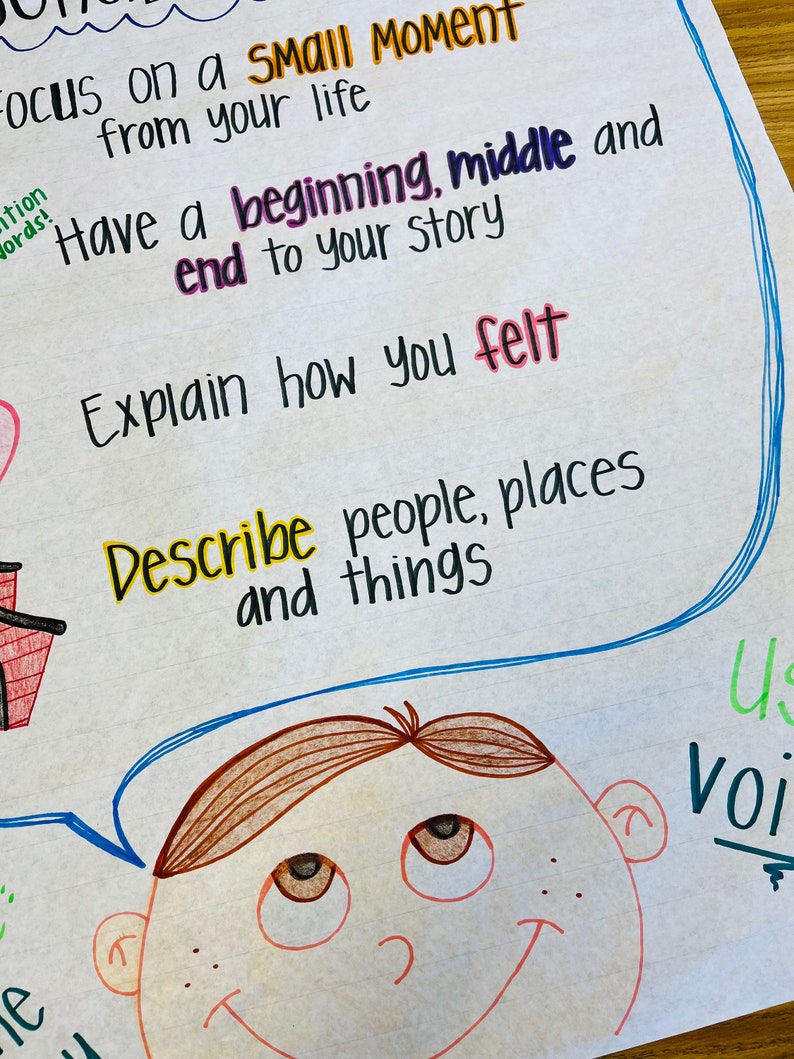 Focus on a SMALL MOMENT
from your life
words!
Have a beginning, middle and
end to your story
Explain how you felt
Describe people, places
and things